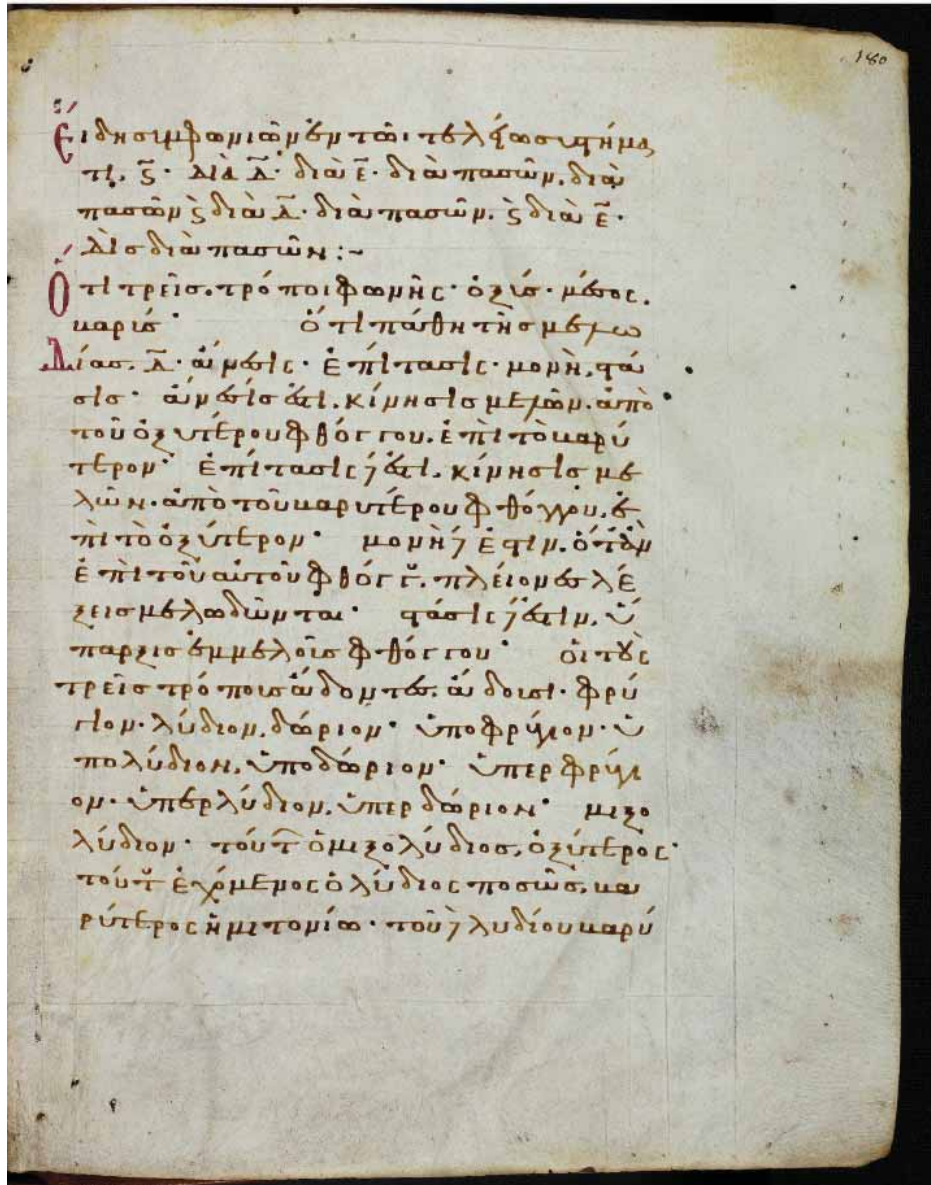 180
Εἴδη συμφωνιῶν ἐν τῶι τελείω συστήμα
τι. ϛ̄· διὰ δ̄· διὰ ε̄· διὰ πασῶν. διὰ
πασῶν ϗ διὰ δ̄· διὰ πασῶν. ϗ διὰ ε̄·
δὶς διὰ πασῶν :~
Ὅτι τρεῖς τρόποι φωνῆς· ὀξύς· μέσος.
βαρύς· ὅτι πάθη τῆς μελω
δίας. δ̄· ἄνεσις· ἐπίτασις· μονὴ. στά
σις· ἄνεσίς ἐστι. κίνησις μελῶν. ἀπὸ
τοῦ ὀξυτέρου φθόγγου. ἐπὶ τὸ βαρύ
τερον· ἐπίτασις δ ἐστι. κίνησις με
λῶν. ἀπὸ τοῦ βαρυτέρου φθόγγου. ἐ
πὶ τὸ ὀξύτερον· μονὴ δ ἐστιν. ὅταν
ἐπὶ τοῦ αὐτοῦ φθόγγου. πλείονες λέ
ξεις μελωδῶνται· στάσις δ ἐστιν. ὕ
παρξις ἐμμελοῖς φθόγγου· οἱ τοὺς
τρεῖς τρόποις ἄδοντες. ἄδουσι· φρύ
γιον· λύδιον. δώριον· ὑποφρύγιον· ὑ
πολύδιον. ὑποδώριον· ὑπερφρύγι
ον· ὑπερλύδιον. ὑπερδώριον· μιξο
λύδιον· τούτων ὁ μιξολύδιος. ὀξύτερος·
τούτου ἐχόμενος ὁ λύδιος ποσῶς. βα
ρύτερος ἡμιτονίω· τοῦ δ λυδίου βαρύ